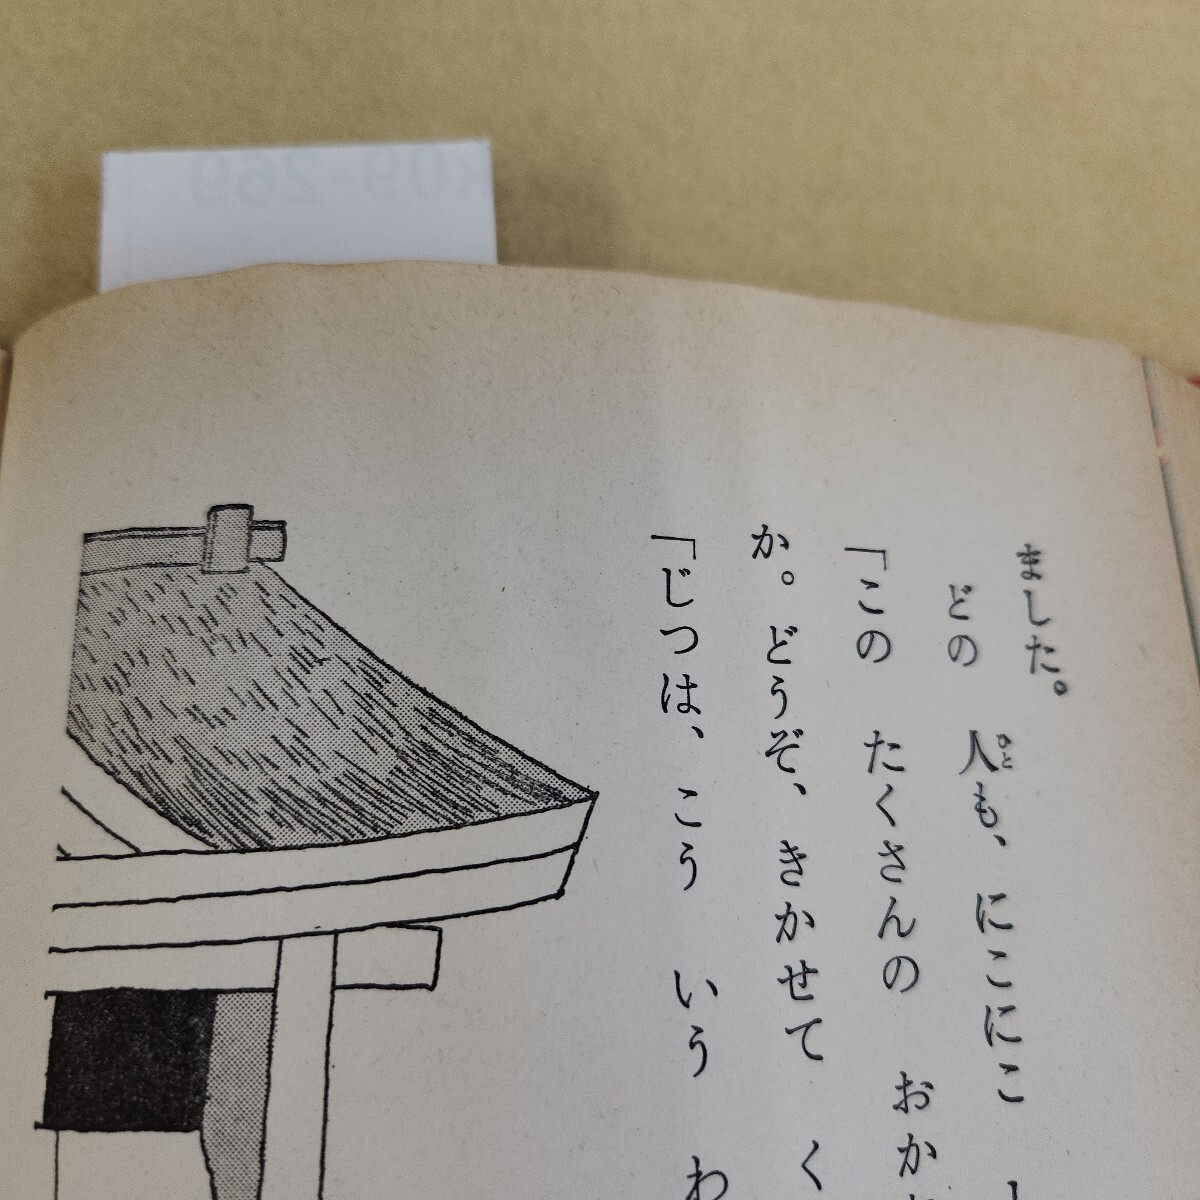 ました。
どの 人も、にこにこ
「この たくさんの おか
か。どうぞ、きかせて く
「じつは、こう いう わ
ひと
k09-269